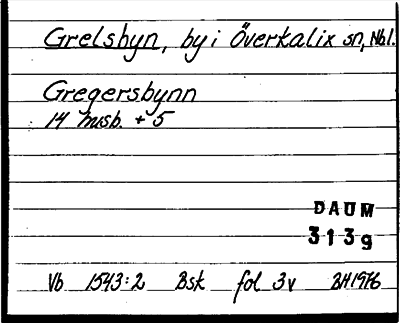 Grelsbyn, by i Överkalix sn, Nbl.
Gregersbynn
14 misb. + 5
DAUM
313g
Vb 1543:2 Bsk fol 3v BH1976